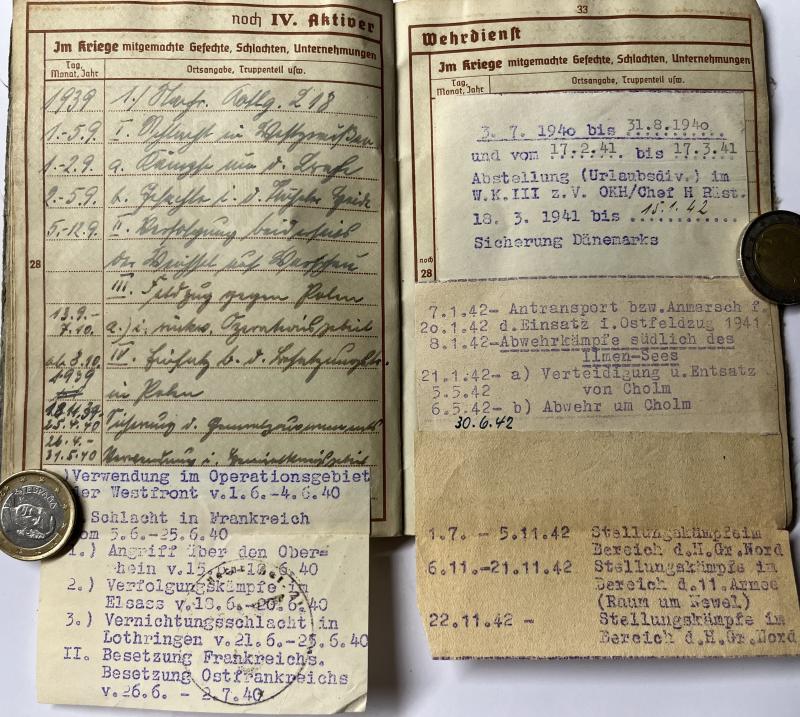 noch IV. Aktiver
Im Kriege mitgemachte Gefechte, Schlachten, Unternehmungen
Tag, Monat, Jahr
Ortsangabe, Truppenteil usw.
1939
1.-5.9. I. Schlacht in Westpreußen
1.-2.9. a. Kämpfe um d. Brahe
2.-5.9. b. Gefechte i. d. Tucheler Heide
5.-12.9. II. Verfolgung beiderseits
der Weichsel auf Warschau
28
III. Feldzug gegen Polen
13.9.-
7.10. a.) i. rückw. Operationsgebiet
ab 8.10. IV. Einsatz b. d.
1939
in Polen
25.4.40 Sicherung d. Generalgouvernements
26.4.-
31.5.40 Verwendung i.
)Verwendung im Operationsgebiet
der Westfront v.1.6.-4.6.40
Schlacht in Frankreich
vom 5.6.-25.6.40
1.) Angriff über den Ober=
rhein v.15.6.-18.6.40
2.) Verfolgungskämpfe im
Elsass v.18.6.-20.6.40
3.) Vernichtungsschlacht in
Lothringen v.21.6.-25.6.40
II. Besetzung Frankreichs.
Besetzung Ostfrankreichs
v.26.6. - 2.7.40
33
Wehrdienst
Im Kriege mitgemachte Gefechte, Schlachten, Unternehmungen
Tag, Monat, Jahr
Ortsangabe, Truppenteil usw.
3. 7. 1940 bis 31.8.1940
und vom 17.2.41 bis 17.3.41
Abstellung (Urlaubsdiv.) im
W.K.III z.V. OKH/Chef H Rüst.
18. 3. 1941 bis 15.1.42
Sicherung Dänemarks
noch
28
7.1.42- Antransport bzw.Anmarsch f.
20.1.42 d.Einsatz i.Ostfeldzug 1941
8.1.42-Abwehrkämpfe südlich des
Ilmen-Sees
21.1.42- a) Verteidigung u.Entsatz
5.5.42 von Cholm
6.5.42- b) Abwehr um Cholm
30.6.42
1.7. - 5.11.42 Stellungskämpfeim
Bereich d.H.Gr.Nord
6.11.-21.11.42 Stellungskämpfe im
Bereich d.11.Armee
(Raum um Newel)
22.11.42 - Stellungskämpfe im
Bereich d.H.Gr.Nord